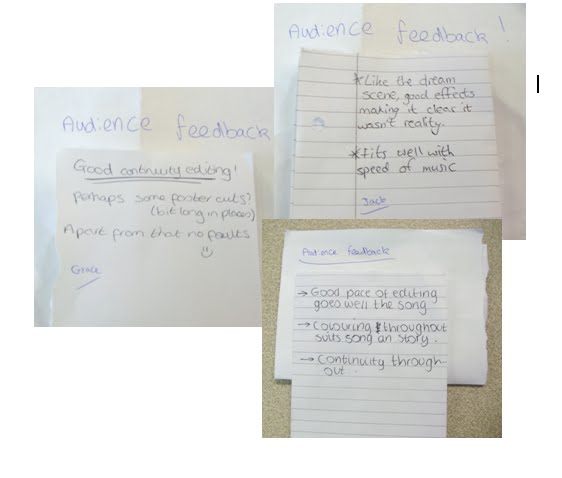 Audience feedback
Good continuity editing!
Perhaps some faster cuts?
(bit long in places)
Apart from that no faults
Grace
Audience feedback!
*Like the dream
scene, good effects
making it clear it
wasn't reality.
*Fits well with
speed of music
Jack
Audience feedback
→ Good pace of editing
goes well the song
→ Colouring throughout
suits song an story.
→ Continuity through-
out.